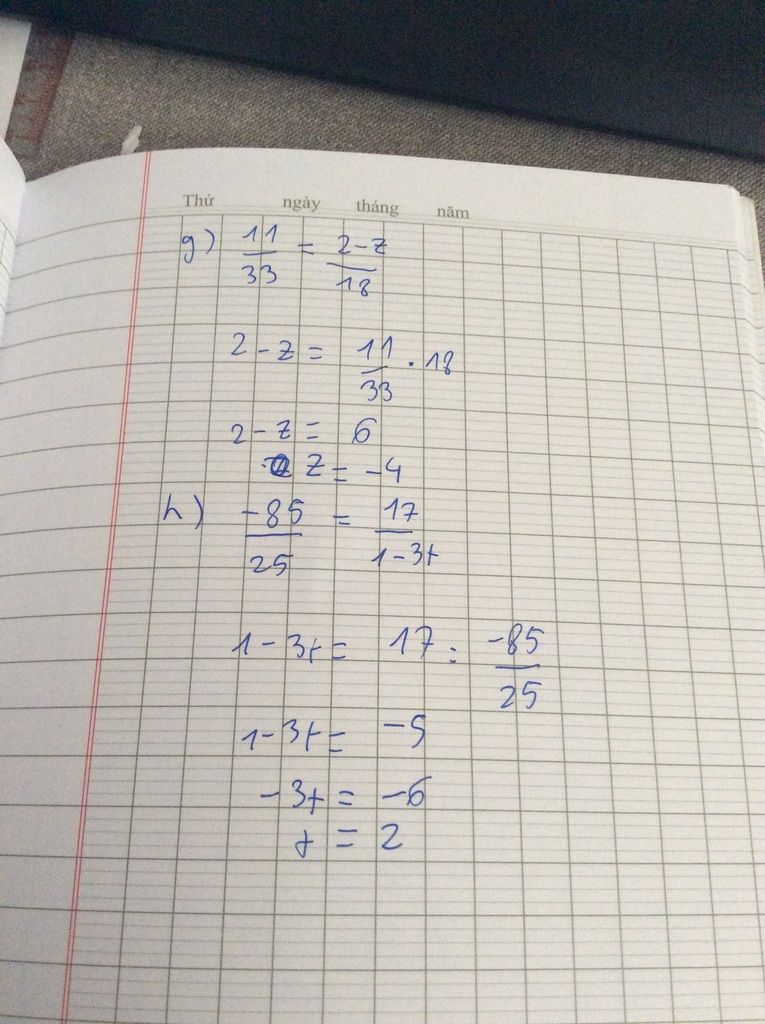 Thứ ngày tháng năm
g) 11/33 = 2-z/18
2 - z = 11/33 . 18
2 - z = 6
z = -4
h) -85/25 = 17/1-3t
1 - 3t = 17 : -85/25
1 - 3t = -5
-3t = -6
t = 2